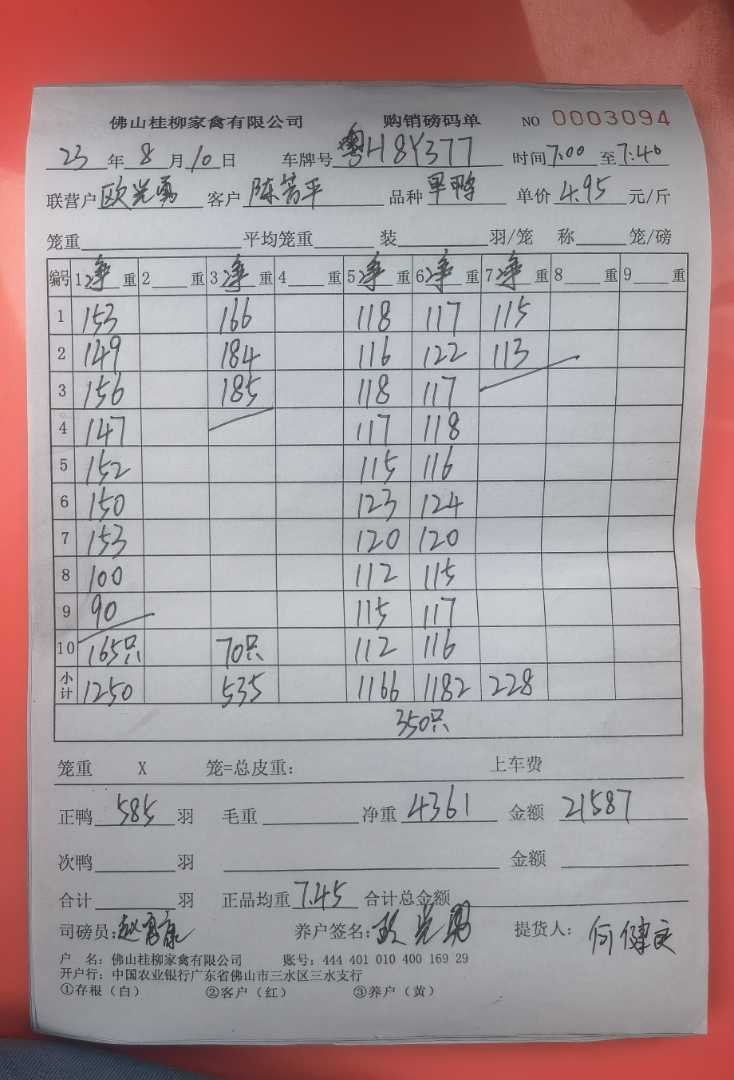 佛山桂柳家禽有限公司 购销磅码单 NO 0003094
23年8月10日 车牌号 粤H8Y377 时间7:00至7:40
联营户欧光勇 客户 陈菁平 品种 旱鸭 单价 4.95 元/斤
笼重 平均笼重 装 羽/笼 称 笼/磅
编号 1净重 2 重 3净重 4 重 5净重 6净重 7净重 8 重 9 重
1 153 166 118 117 115
2 149 184 116 122 113
3 156 185 118 117
4 147 117 118
5 152 115 116
6 150 123 124
7 153 120 120
8 100 112 115
9 90 115 117
10 165只 70只 112 116
小计 1250 535 1166 1182 228
350只
笼重 X 笼=总皮重： 上车费
正鸭 585 羽 毛重 净重 4361 金额 21587
次鸭 羽 金额
合计 羽 正品均重 7.45 合计总金额
司磅员： 养户签名：欧光勇 提货人：何健文
户 名：佛山桂柳家禽有限公司 账号：444 401 010 400 169 29
开户行：中国农业银行广东省佛山市三水区三水支行
①存根（白） ②客户（红） ③养户（黄）